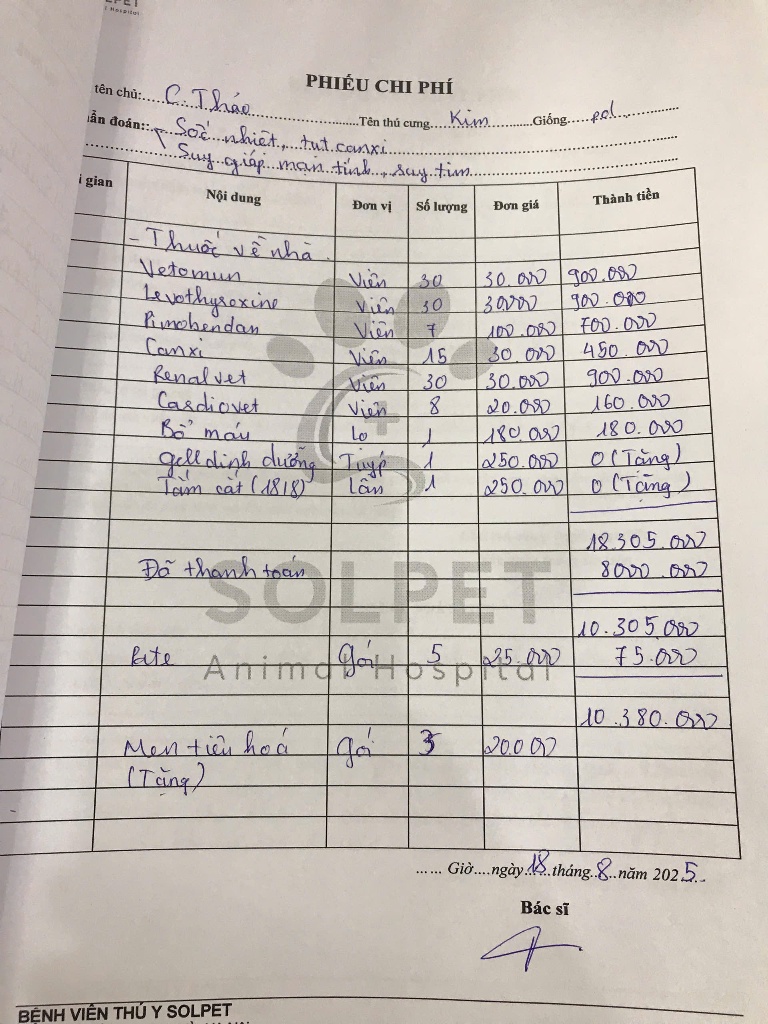 PET
l Hospital
PHIẾU CHI PHÍ
tên chủ:.....C. Thảo.....Tên thú cưng.....Kim.....Giống.....pol.....
ẩn đoán:.. Sốc nhiệt, tụt canxi
Suy giáp mạn tính, suy tim
i gian Nội dung Đơn vị Số lượng Đơn giá Thành tiền
- Thuốc về nhà
Vetomun Viên 30 30.000 900.000
Levothyroxine Viên 30 30000 900.000
Pimobendan Viên 7 100.000 700.000
Canxi Viên 15 30.000 450.000
Renalvet Viên 30 30.000 900.000
Cardiovet Viên 8 20.000 160.000
Bổ máu Lọ 1 180.000 180.000
gell dinh dưỡng Tuýp 1 250.000 0 (Tặng)
Tắm cắt (18/8) Lần 1 250.000 0 (Tặng)
18.305.000
Đã thanh toán 8000.000
SOLPET
10.305.000
Pate Gói 5 25.000 75.000
Animal Hospital
10.380.000
Men tiêu hoá Gói 3 20.000
(Tặng)
...... Giờ....ngày 18 tháng 8 năm 2025
Bác sĩ
BỆNH VIỆN THÚ Y SOLPET